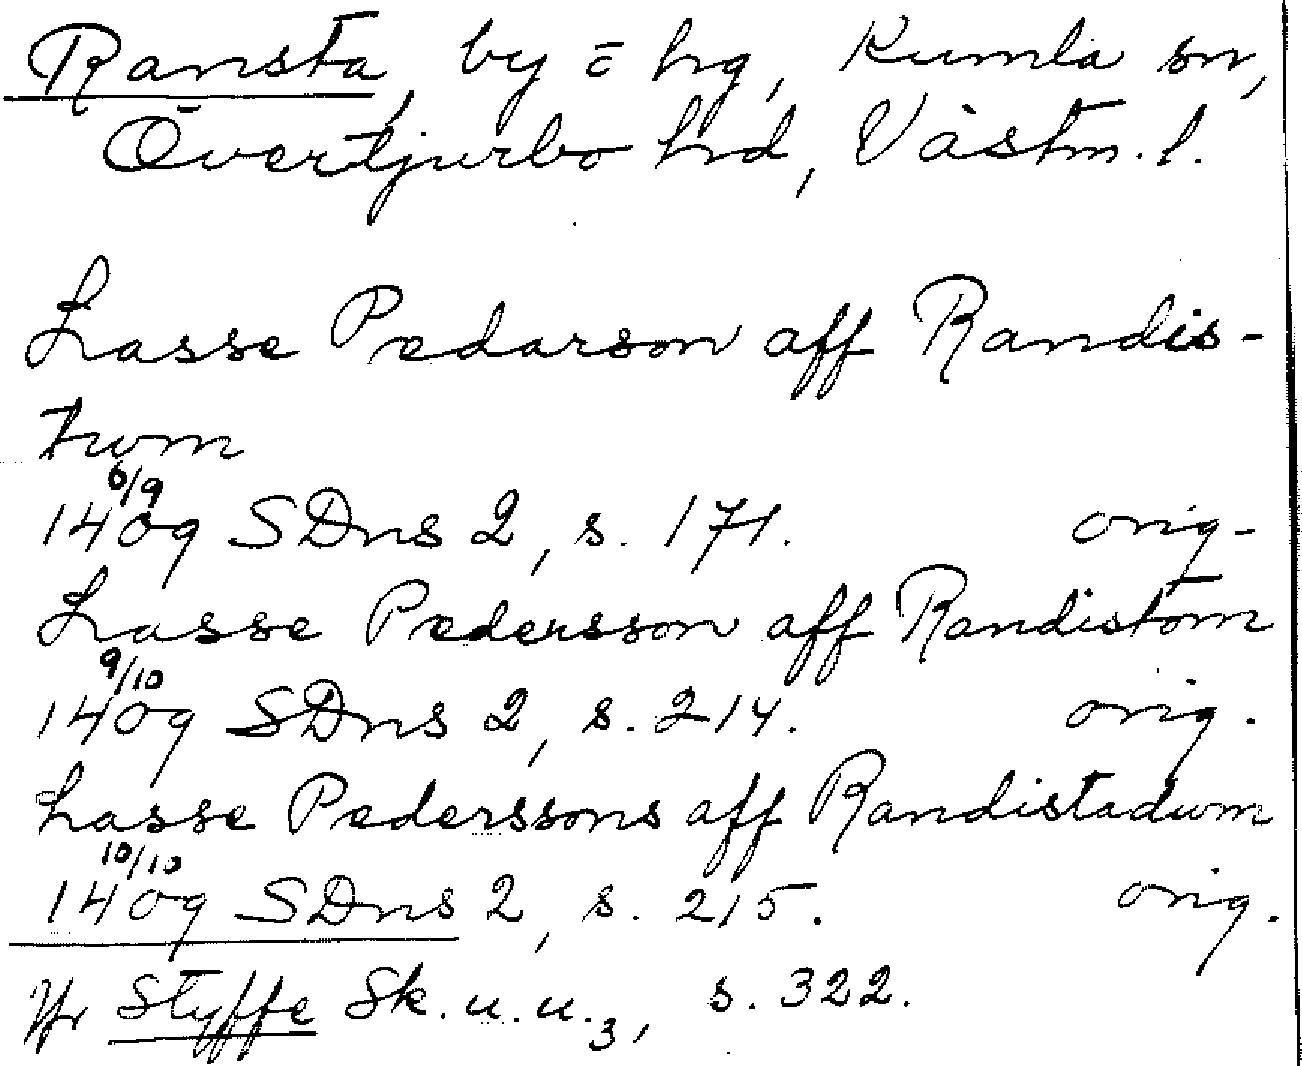 Ransta, by o hg, Kumla sn,
Övertjurbo hd, Västm. l.
Lasse Pedarson aff Randis-
tum
6/9
1409 SDns 2, s. 171. orig.
Lasse Pedersson aff Randistom
9/10
1409 SDns 2, s. 214. orig.
Lasse Pederssons aff Randistadum
10/10
1409 SDns 2, s. 215. orig.
Jfr Styffe Sk. u. u. 3, s. 322.